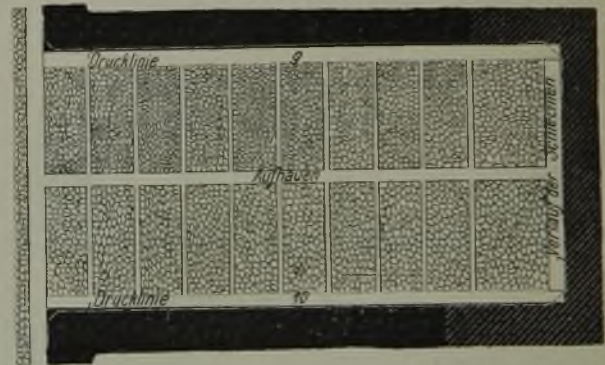 Drucklinie 9
Aufhauen
Verlauf der Schlechten
Drucklinie 10